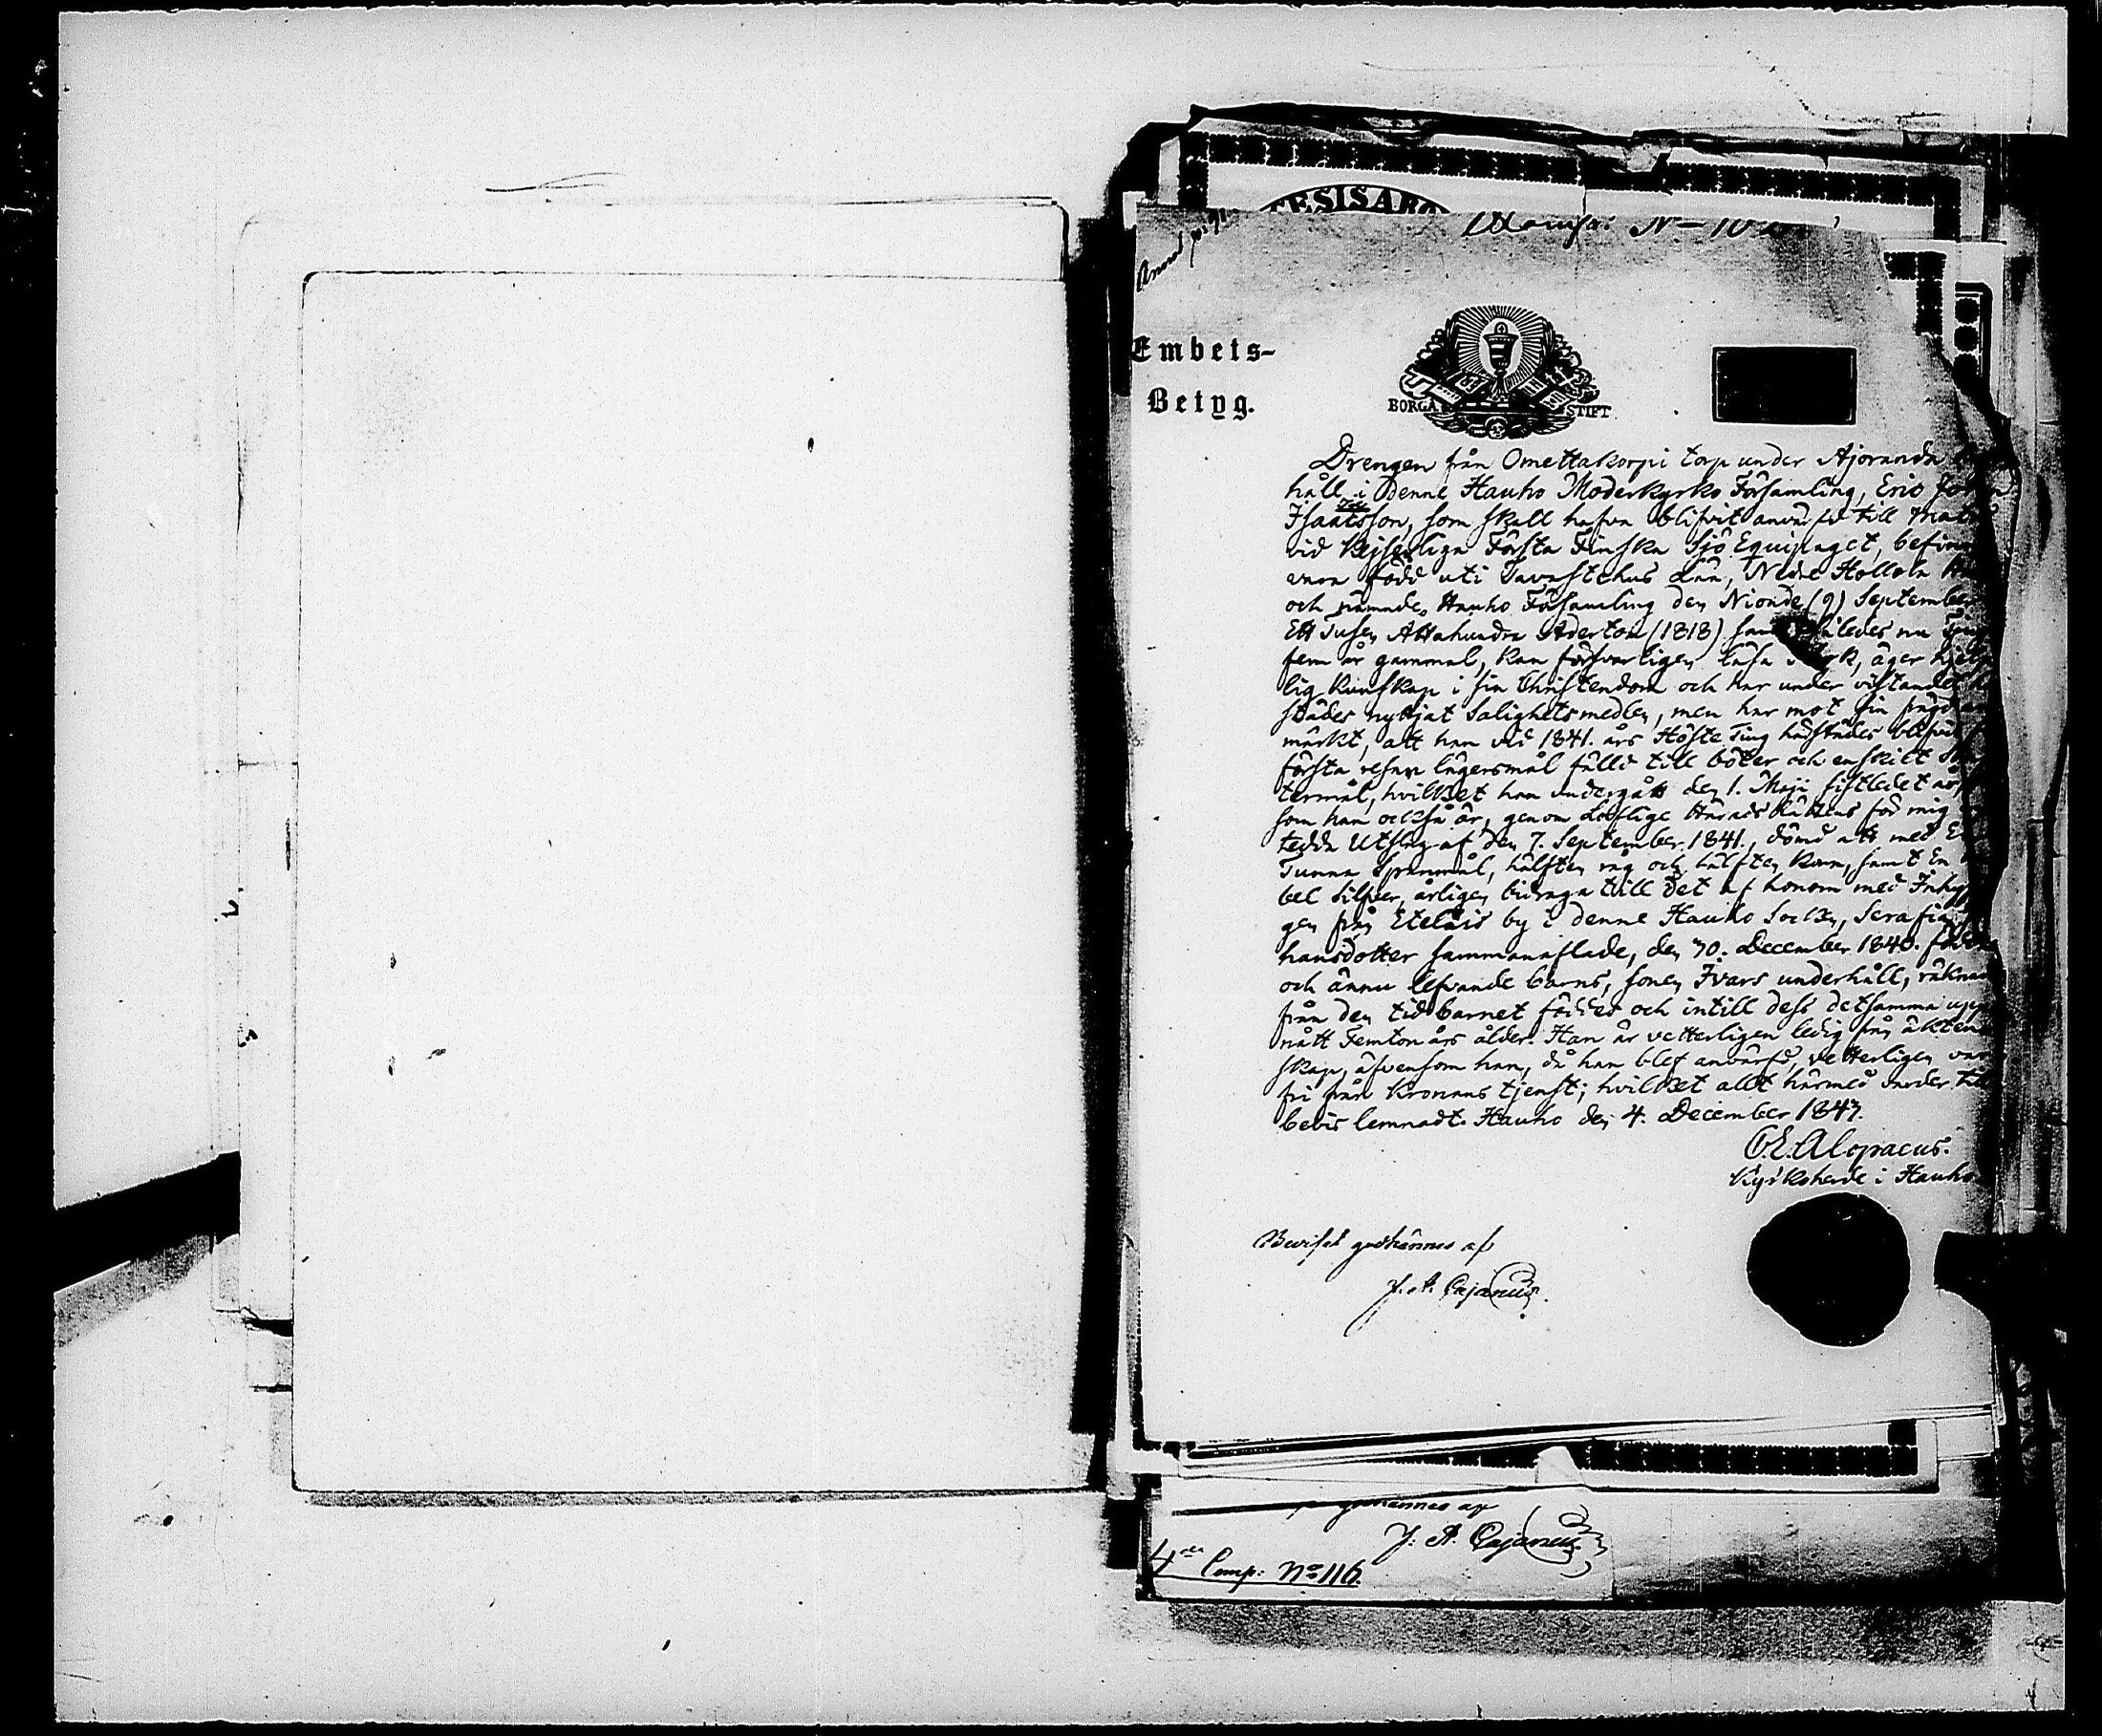 TESISABO
Comp: N
Embets-
Betyg.
BORGÅ STIFT
Drengen från Omettakorpi torp under Ajoranda
håll i denne Hauho Moderkyrko Församling, Eric Johan
Isaacsson, som skall hafva blifvit anvärfd till Matros
vid Kejserliga Första Finska Sjö Equipaget, befinnes
vara född uti Tavastehus Län, Nedre Hollola
och nämnde Hauho Församling den Nionde (9) September
Ett Tusen Åttahundra Aderton (1818) således nu Tjugu
fem år gammal, kan försvarligen läsa i bok, äger hjelp
lig kunskap i sin Christendom och har under vistandet
städes nyttjat Salighetsmedlen, men har mot sin frägd an
märkt, att han vid 1841. års Höste Ting härstädes blifvit
första resan lägersmål fälld till böter och enskilt Skrif
termål, hvilket han undergått den 1. Maji sistledet år,
som han också är, genom Loflige Härads Rättens för mig
tedda Utslag af den 7. September 1841., dömd att med En
Tunna Spanmål, hälften råg och hälften korn, samt En
bel Silfver, årligen bidraga till det af honom med Inhys
gen från Eteläis by i denne Hauho Socken, Serafia
hansdotter sammanaflade, den 30. December 1840. födde
och ännu lefvande barns, sonen Ivars underhåll, räknad
från den tid barnet föddes och intill dess detsamma upp
nått Femton års ålder. Han är vetterligen ledig från äkten
skap, äfvensom han, då han blef anvärfd, vetterligen var
fri från Kronans tjenst; hvilket allt härmed varder till
bevis lemnadt. Hauho den 4. December 1843.
O.E. Alopaeus.
Kyrkoherde i Hauho
Beviset godkännes af
J. A. Cajanus.
godkännes af
J: A. Cajanus.
4de Comp: No 116.